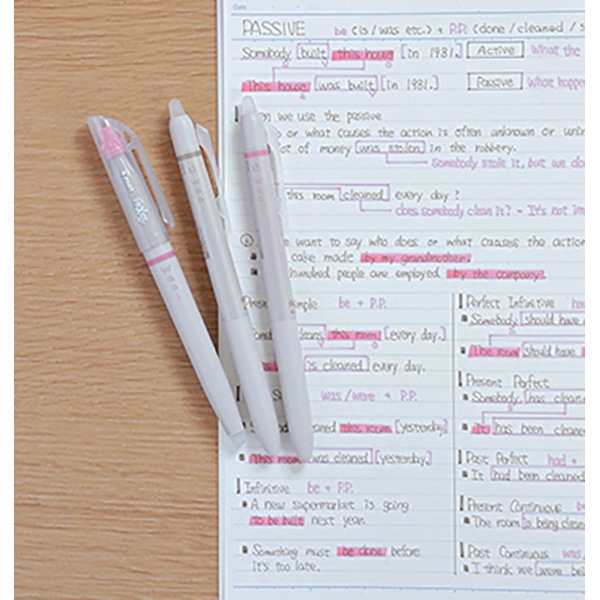 Date
PASSIVE be (is/was etc.) + P.P. (done/cleaned/s
Somebody built this house [in 1981.] Active What the
This house was built [in 1981.] Passive What happen
we use the passive
or what causes the action is often unknown or
of money was stolen in the robbery.
Somebody stole it, but we do
this room cleaned every day?
does somebody clean it? - It's not im
want to say who does or what causes the action
cake made by my grandmother.
hundred people are employed by the company.
be + P.P.
this room [every day.]
is cleaned every day.
was/were + P.P.
cleaned this room [yesterday]
This room was cleaned [yesterday.]
Infinitive be + P.P.
A new supermarket is going
to be built next year.
Something must be done before
It's too late.
Perfect Infinitive
Somebody should have
The room should have
Present Perfect
Somebody has clean
It has been cleaned
Past Perfect had +
It had been cleaned
Present Continuous
The room is being clean
Past Continuous was
I think we were